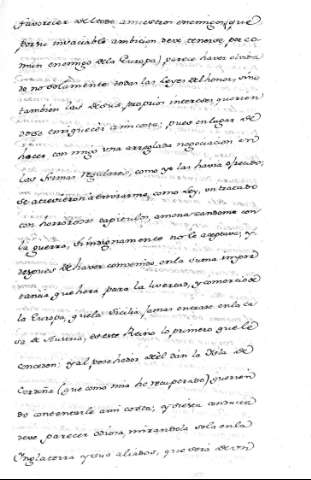 favorecer de todo a nuestros enemigos, que
por su insaciable ambicion deve tenerse por co
mun enemigo de la Europa) parece haver olvida
do no solamente todas las leyes del honor, sino
tambien las de sus proprios intereses, querien
dose enrriquecer a mi costa; pues en lugar de
hacer con migo una arreglada negociacion en
las formas regulares, como ya las havia ofrecido,
se atrevieron a enviarme, como ley, un tratado
con horrorosos capitulos, amenazandome con
la guerra, si indignamente no le aceptava; y
despues de haver convenido en la suma impor
tancia que hera para la livertad, y comercio de
la Europa, que la Sicilia jamas entrase en la ca
sa de Austria, es este Reino lo primero que le
conceden; y al posehedor de el dan la Isla de
Cerdeña (que como mia he recuperado) querien
do contentarle a mi costa; y si esta conducta
deve parecer odiosa, mirandola sola en la
Inglaterra y sus aliados, que sera de un